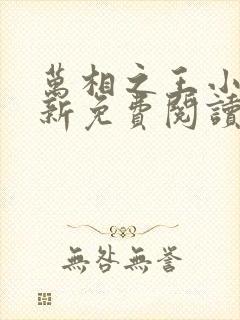 萬相之王小
新免費閱讀
無咎無譽